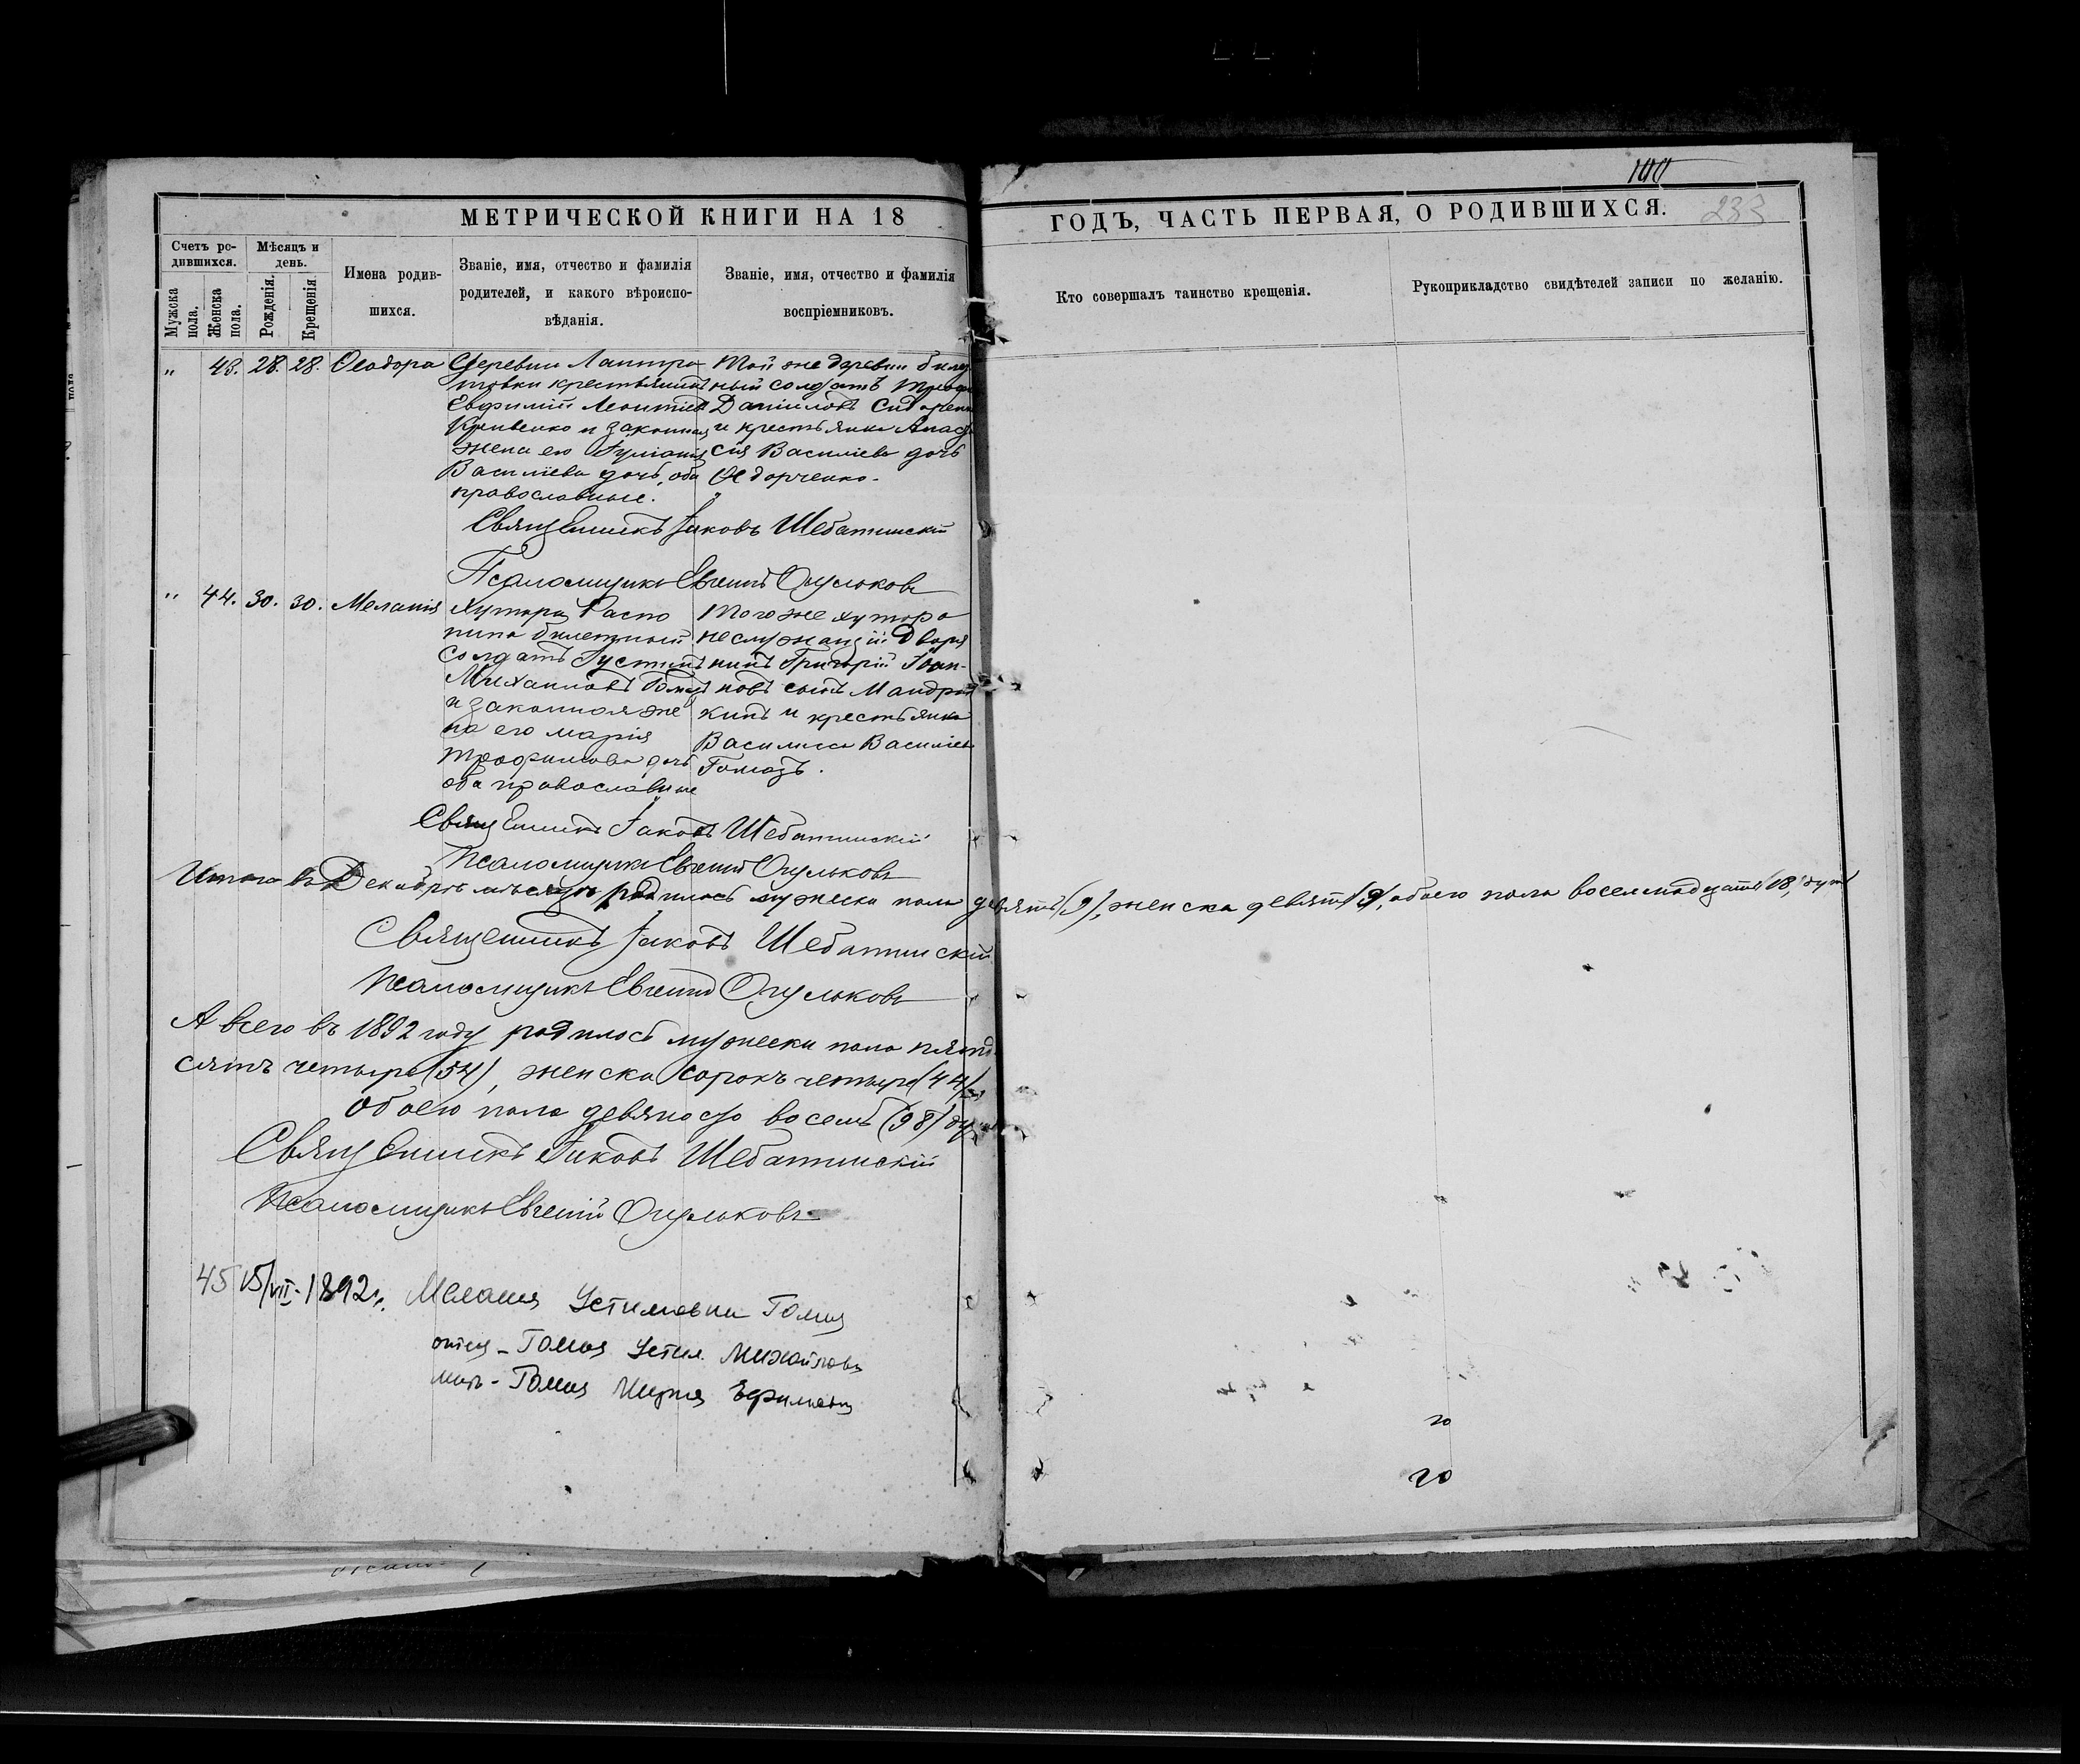 100
МЕТРИЧЕСКОЙ КНИГИ НА 18
ГОДЪ, ЧАСТЬ ПЕРВАЯ, О РОДИВШИХСЯ.
233
Счетъ ро-
дившихся.
Мужска пола.
Женска пола.
Мѣсяцъ и
день.
Рожденія.
Крещенія
Имена родив-
шихся.
Званіе, имя, отчество и фамилія
родителей, и какого вѣроиспо-
вѣданія.
Званіе, имя, отчество и фамилія
воспріемниковъ.
Кто совершалъ таинство крещенія.
Рукоприкладство свидѣтелей записи по желанію.
" 43. 28. 28. Ѳеодора
Деревни
крестьянинъ
Евфимій Леонтіев
Кривенко и законная
жена его Іуліанія
Василіева дочь, оба
православные.
Той же деревни билет
ный солдатъ
Даніиловъ Сидорен
и крестьянка Анаста
сія Василіева дочь
Ѳедорченко.
Священникъ Іаковъ Шебатинскій
Псаломщикъ Евгеній
" 44. 30. 30. Меланія
Хутора Распо
пина билетный
солдатъ Іустинъ
Михаиловъ
и законная же
на его Марія
Трофимова дочь
оба православные
Того же хутора
неслужащій дворя
нинъ Григорій Іоан-
новъ сынъ Мандры
кинъ и крестьянка
Василиса Василіев
Гомазъ.
Священникъ Іаковъ Шебатинскій
Псаломщикъ Евгеній
Итого въ Декабрѣ мѣсяцѣ родилось мужеска пола девять (9), женска девять (9), обоего пола восемнадцать (18) душъ
Священникъ Іаковъ Шебатинскій
Псаломщикъ Евгеній
А всего въ 1892 году родилось мужеска пола пятьде
сятъ четыре (54), женска сорокъ четыре (44)
Обоего пола девяносто восемь (98) душ
Священникъ Іаковъ Шебатинскій
Псаломщикъ Евгеній
45 15/VII-1892г. Мелания Устимовна Гомия
отец - Гомия Устим Михайлович
мать - Гомия Мария Ефимовна